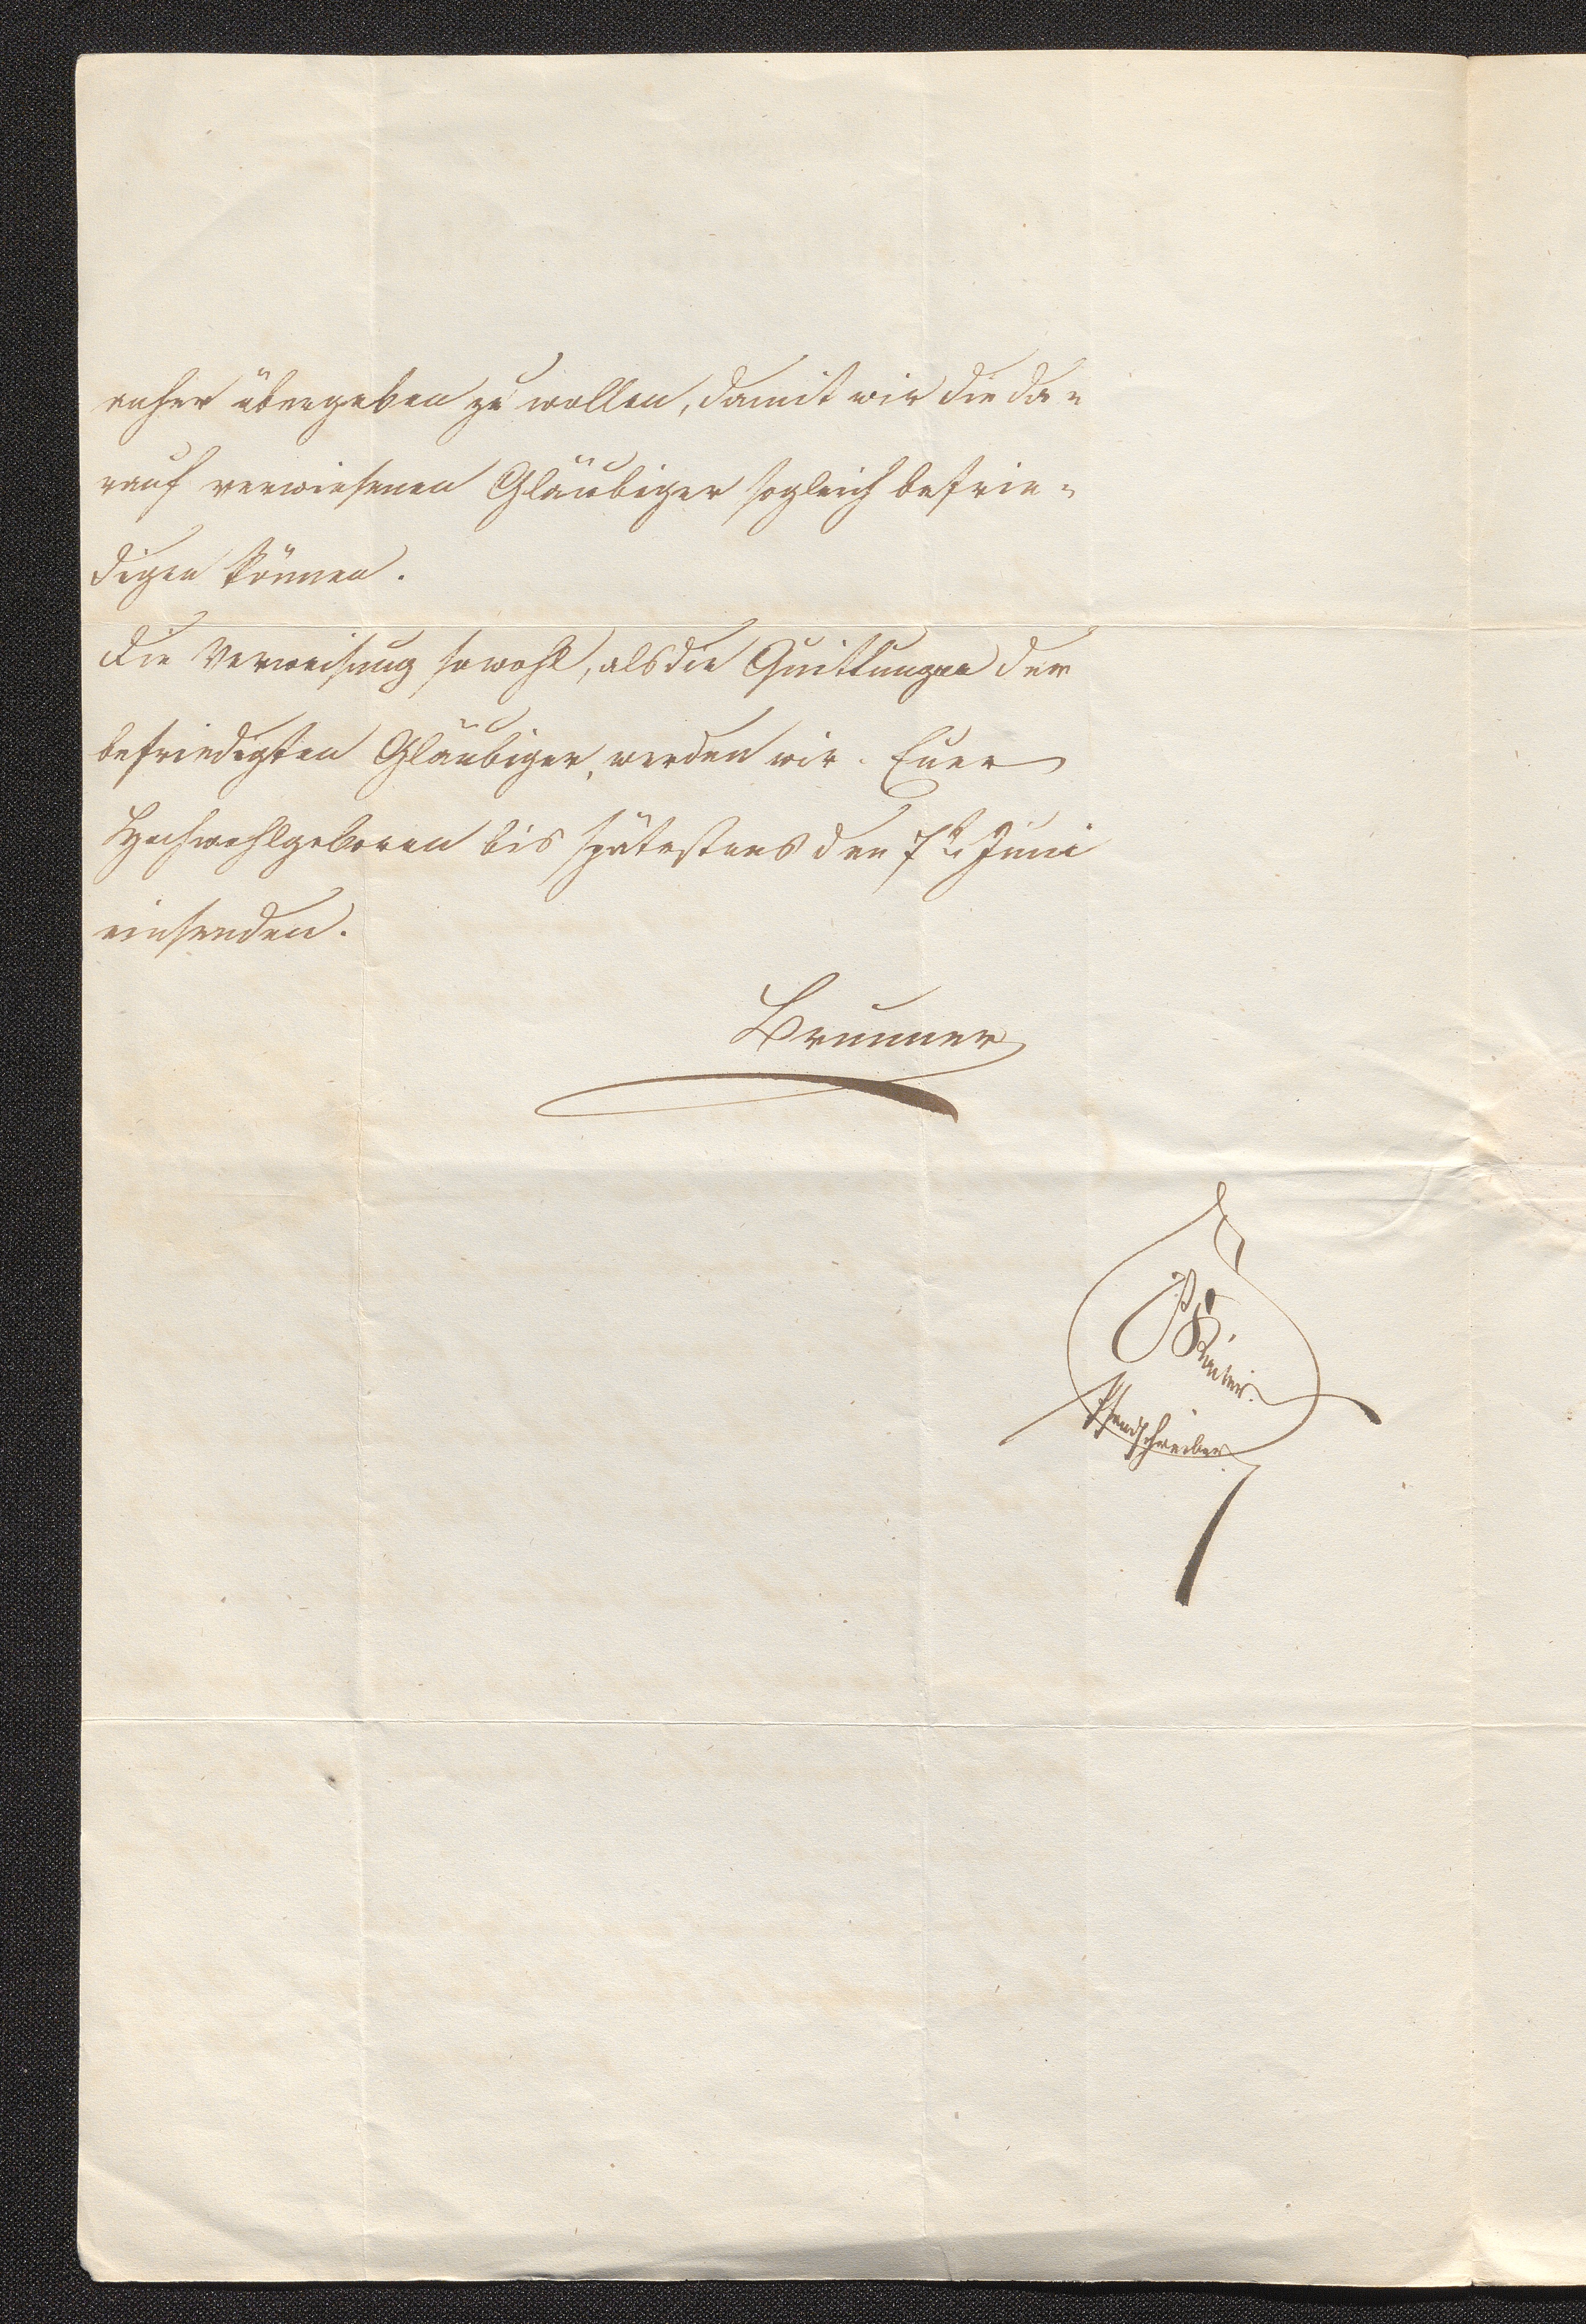 anher übergeben zu wollen, damit wir die da=
rauf verwiesenen Gläubiger sogleich befrie=
digen können.
Die Verweisung sowohl, als die Quittungen der
befriedigten Gläubiger, werden wir Euer
Hochwohlgeboren bis spätestens den 7n Juni
einsenden.
Brunner
Pfandschreiber